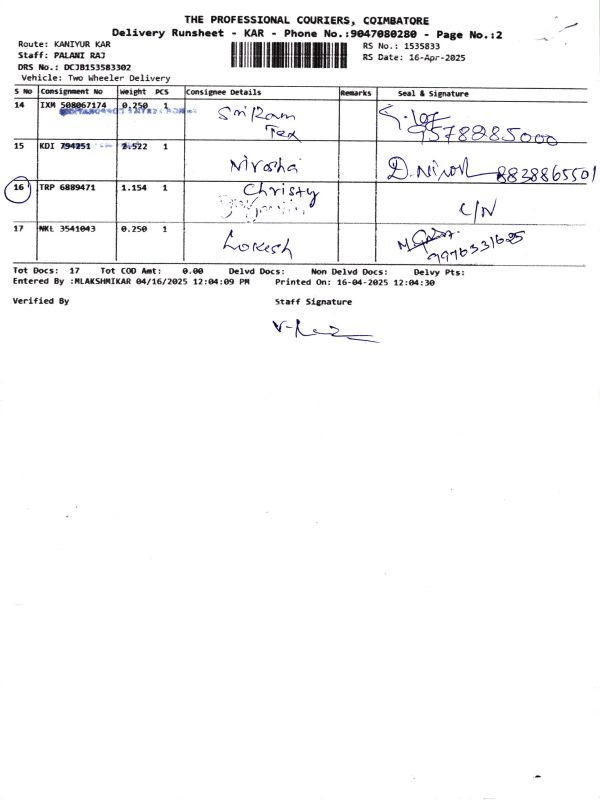 THE PROFESSIONAL COURIERS, COIMBATORE
Delivery Runsheet - KAR - Phone No.:9047080280 - Page No.:2
Route: KANIYUR KAR
RS No.: 1535833
Staff: PALANI RAJ
RS Date: 16-Apr-2025
DRS No.: DCJB153583302
Vehicle: Two Wheeler Delivery
S No Consignment No Weight PCS Consignee Details Remarks Seal & Signature
14 IXM 508067174 0.250 1 Sri Ram
Tex
9578285000
15 KDI 794251 2.522 1 Nirosha D. Nirosh 8838865501
16 TRP 6889471 1.154 1 Christy C/N
17 NKL 3541043 0.250 1 Lokesh
9976331625
Tot Docs: 17 Tot COD Amt: 0.00 Delvd Docs: Non Delvd Docs: Delvy Pts:
Entered By :MLAKSHMIKAR 04/16/2025 12:04:09 PM Printed On: 16-04-2025 12:04:30
Verified By Staff Signature